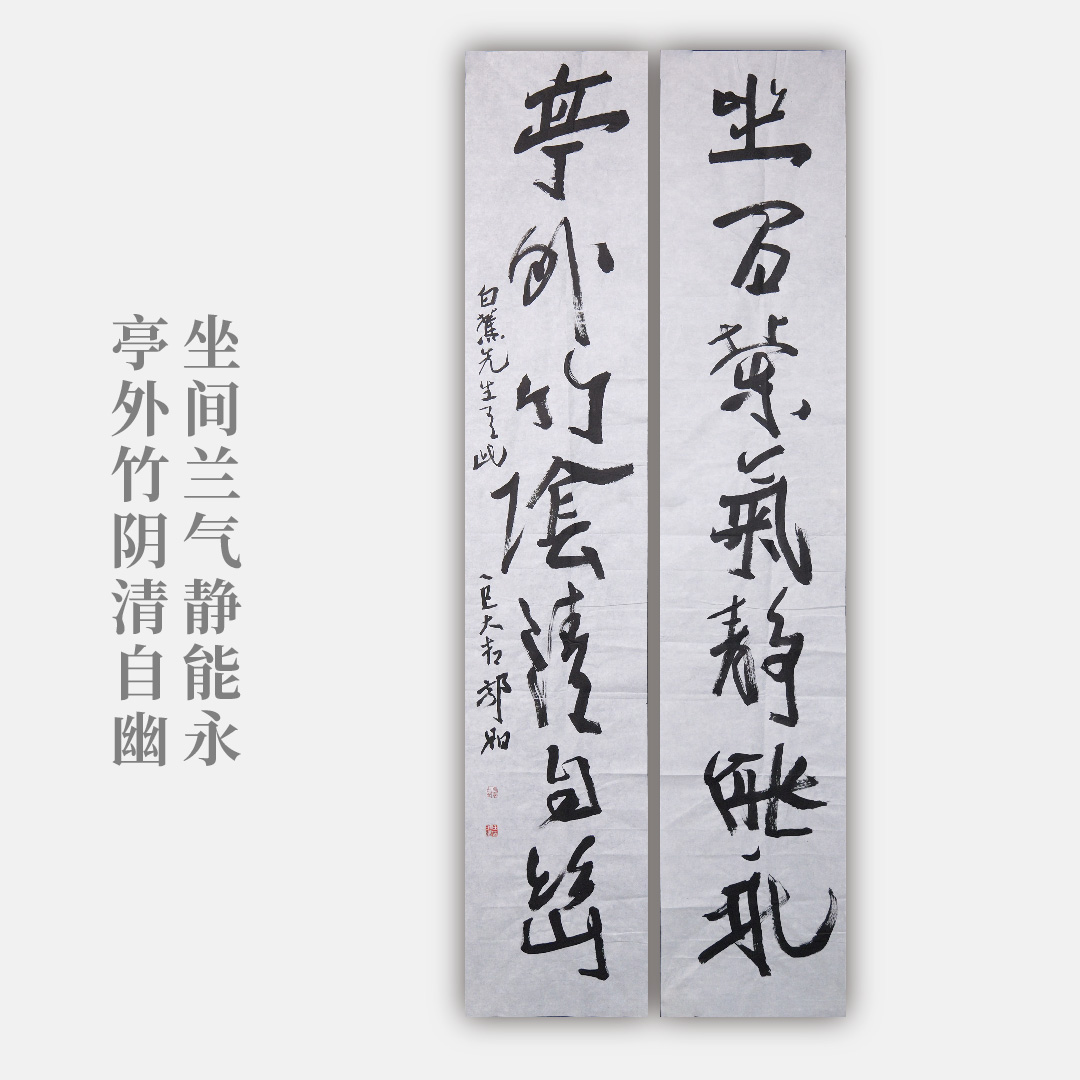 坐间兰气静能永
亭外竹阴清自幽
坐间兰氣静能永
亭外竹陰清自幽
白蕉先生